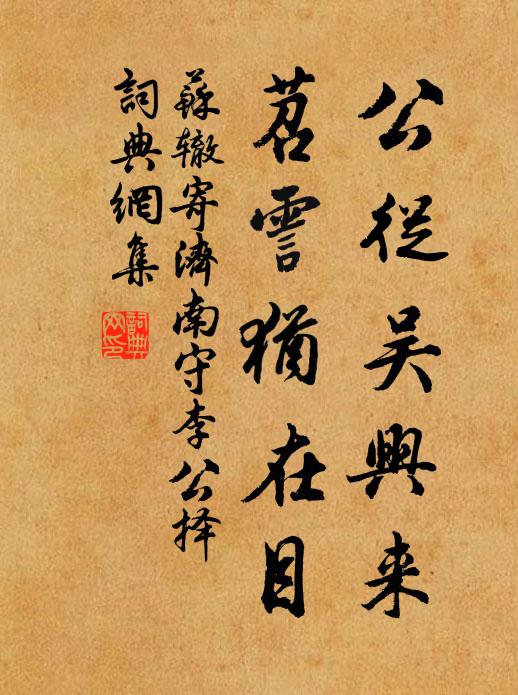 公從吴興来
苕霅猶在目
蘇辙寄濟南守李公择
詞典網集
詞典网印